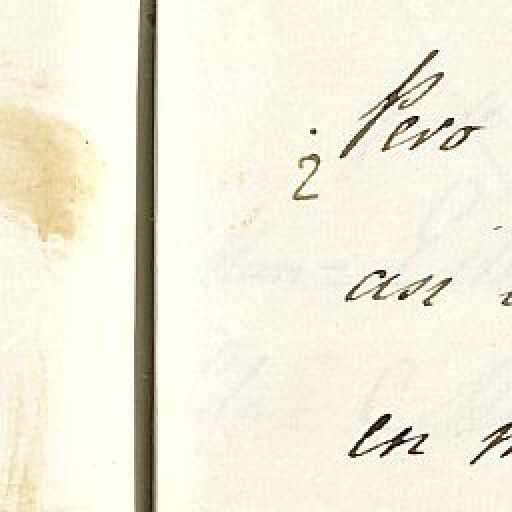 ¿Pero
asi
en